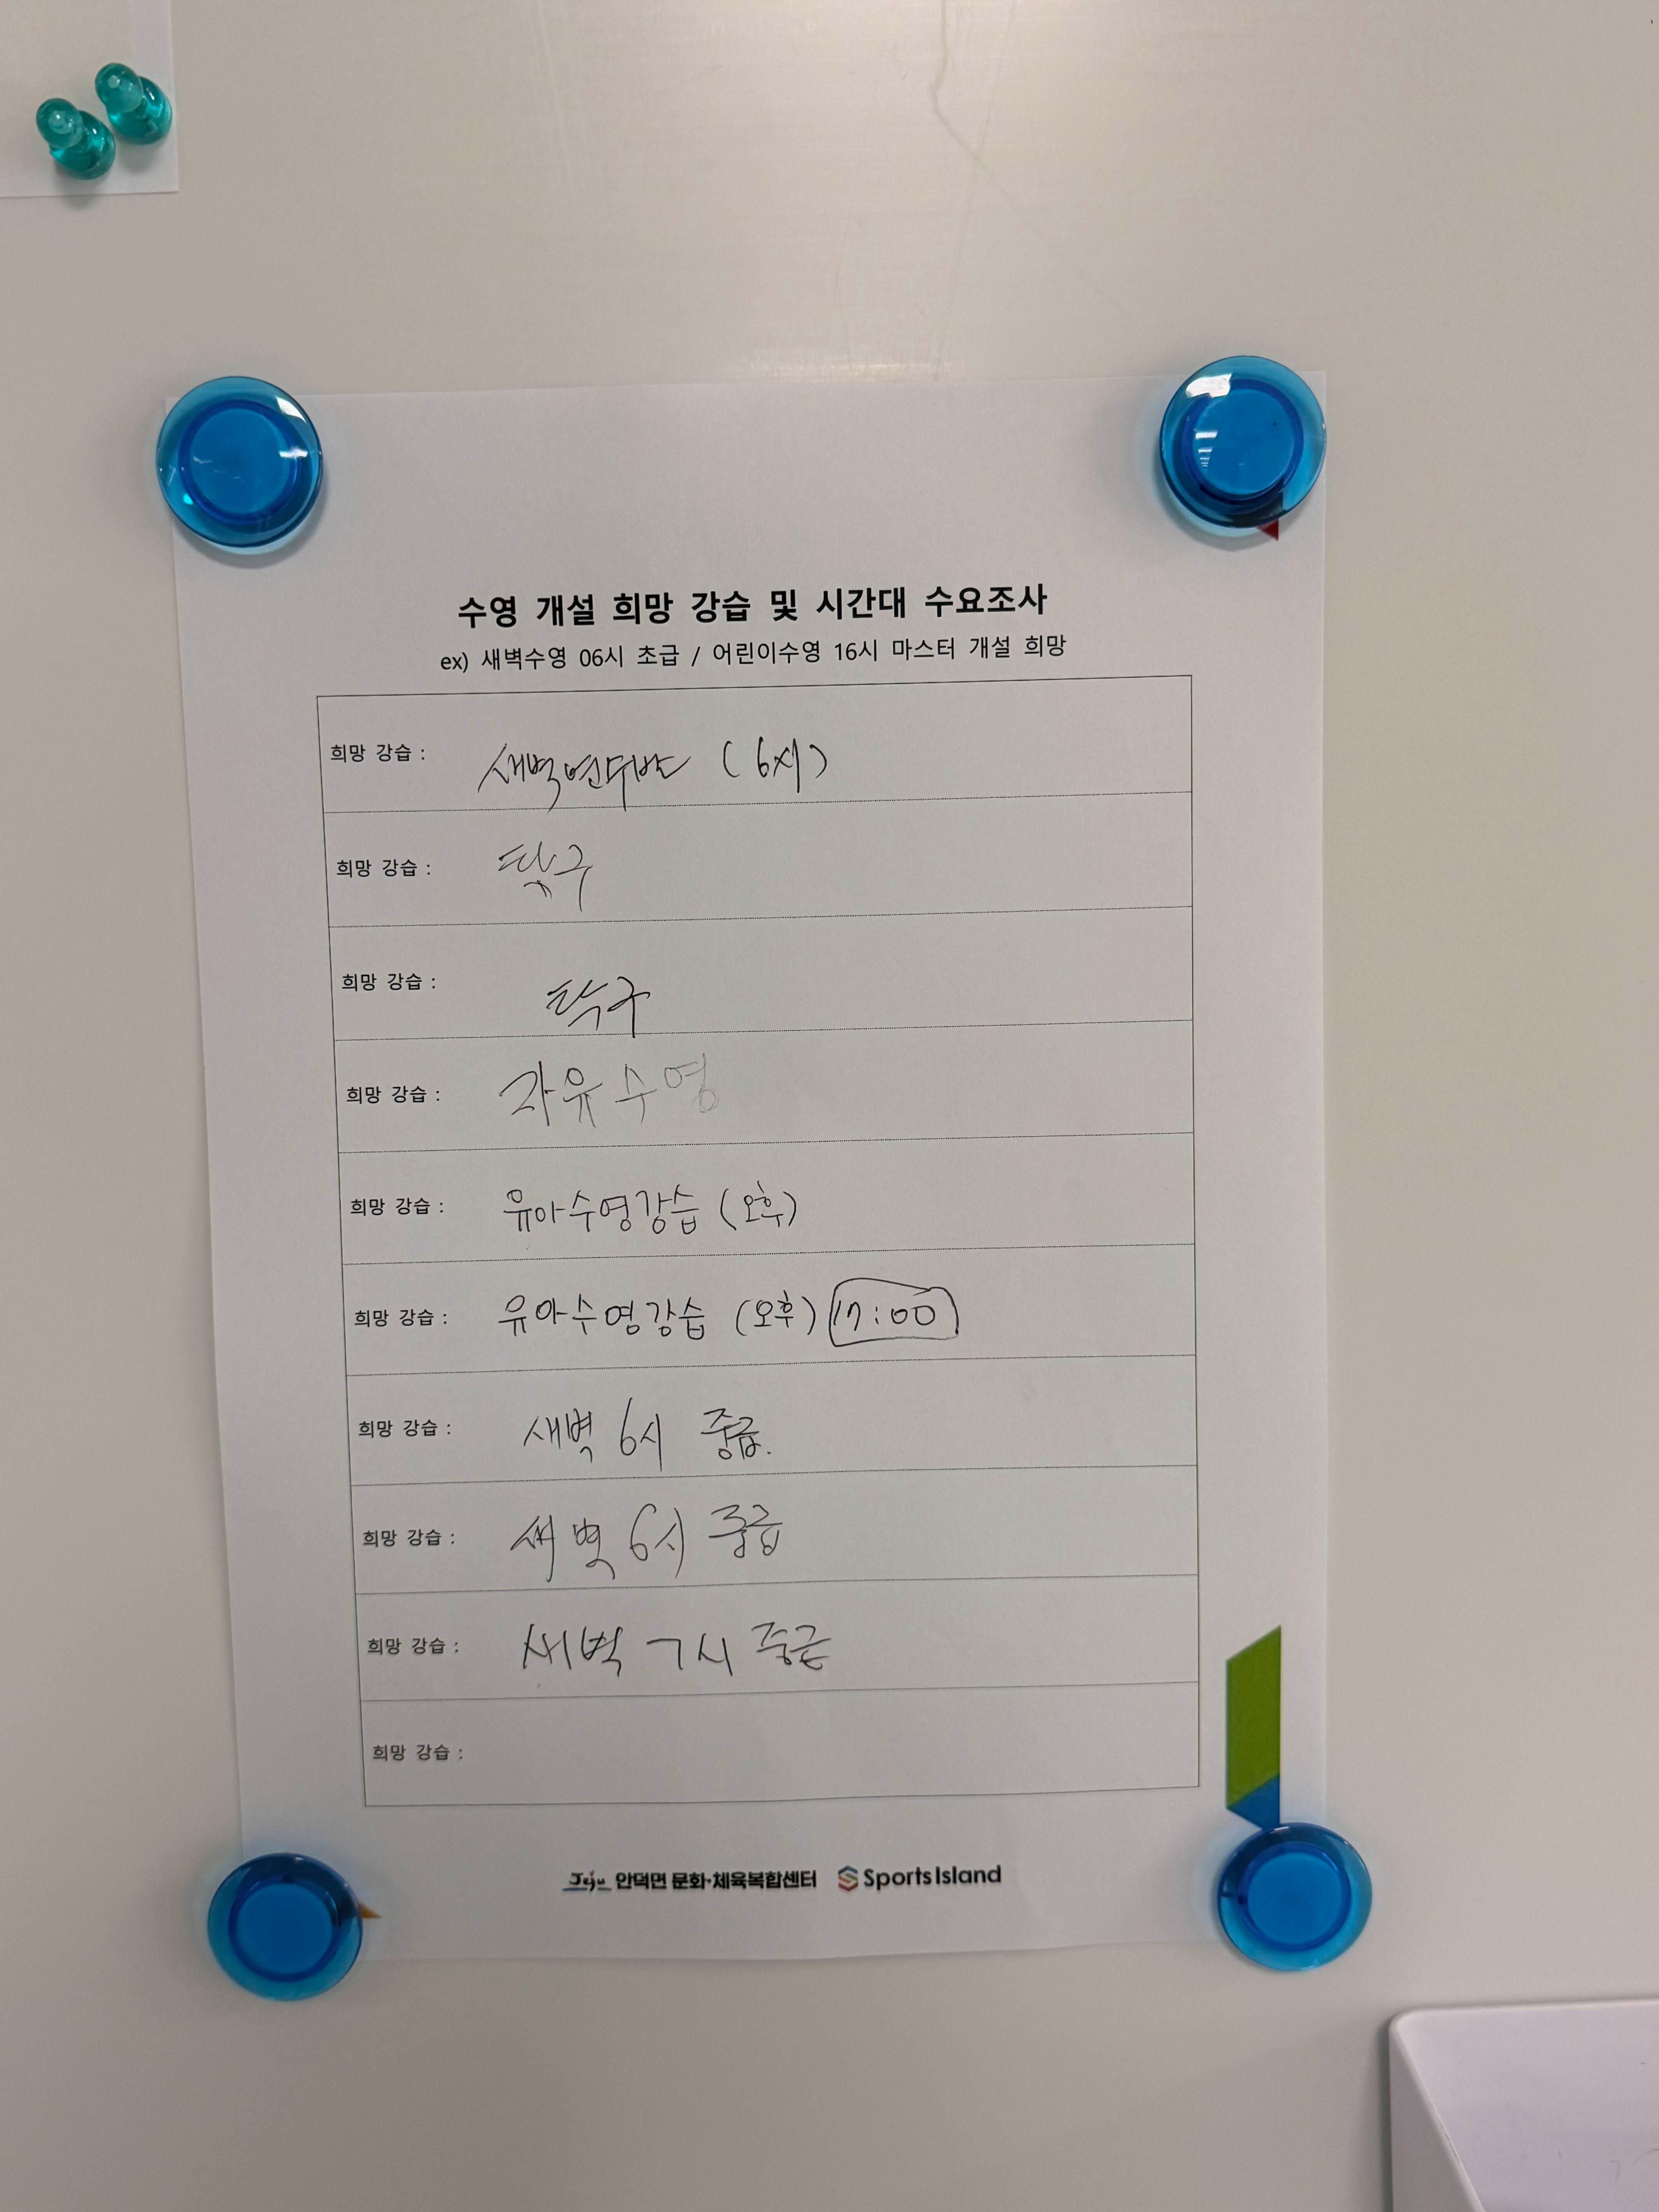 수영 개설 희망 강습 및 시간대 수요조사
ex) 새벽수영 06시 초급 / 어린이수영 16시 마스터 개설 희망
희망 강습 : 새벽연수반 (6시)
희망 강습 : 탁구
희망 강습 : 탁구
희망 강습 : 자유수영
희망 강습 : 유아수영강습 (오후)
희망 강습 : 유아수영강습 (오후) 17:00
희망 강습 : 새벽 6시 중급.
희망 강습 : 새벽 6시 중급
희망 강습 : 새벽 7시 중급
희망 강습 :
Jeju 안덕면 문화·체육복합센터 SportsIsland